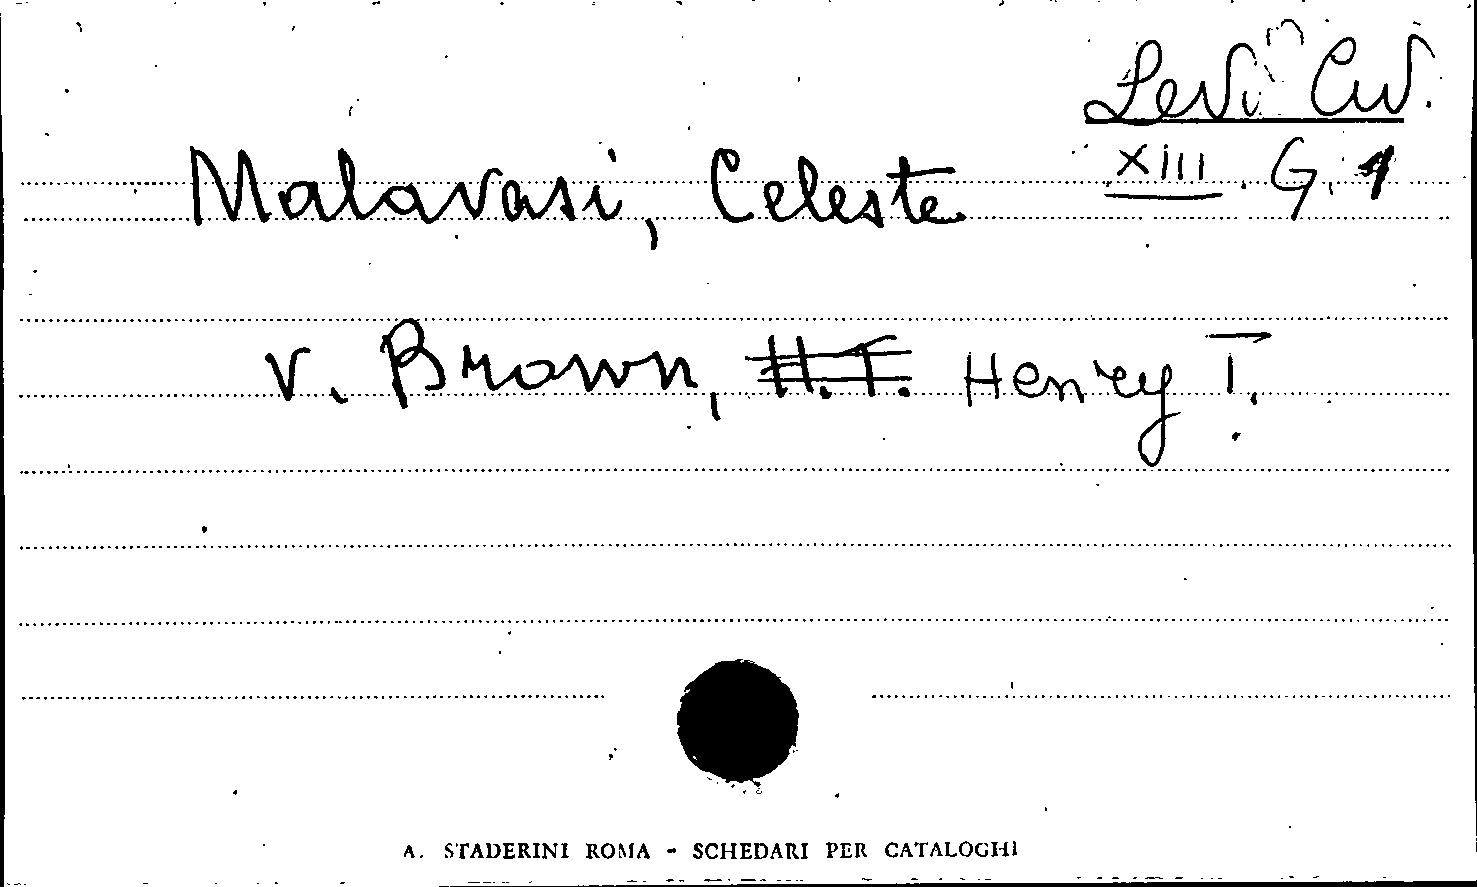 Levi Civ.
XIII. G. 1
Malavasi, Celeste
v. Brown, H.T. Henry T.
A. STADERINI ROMA - SCHEDARI PER CATALOGHI